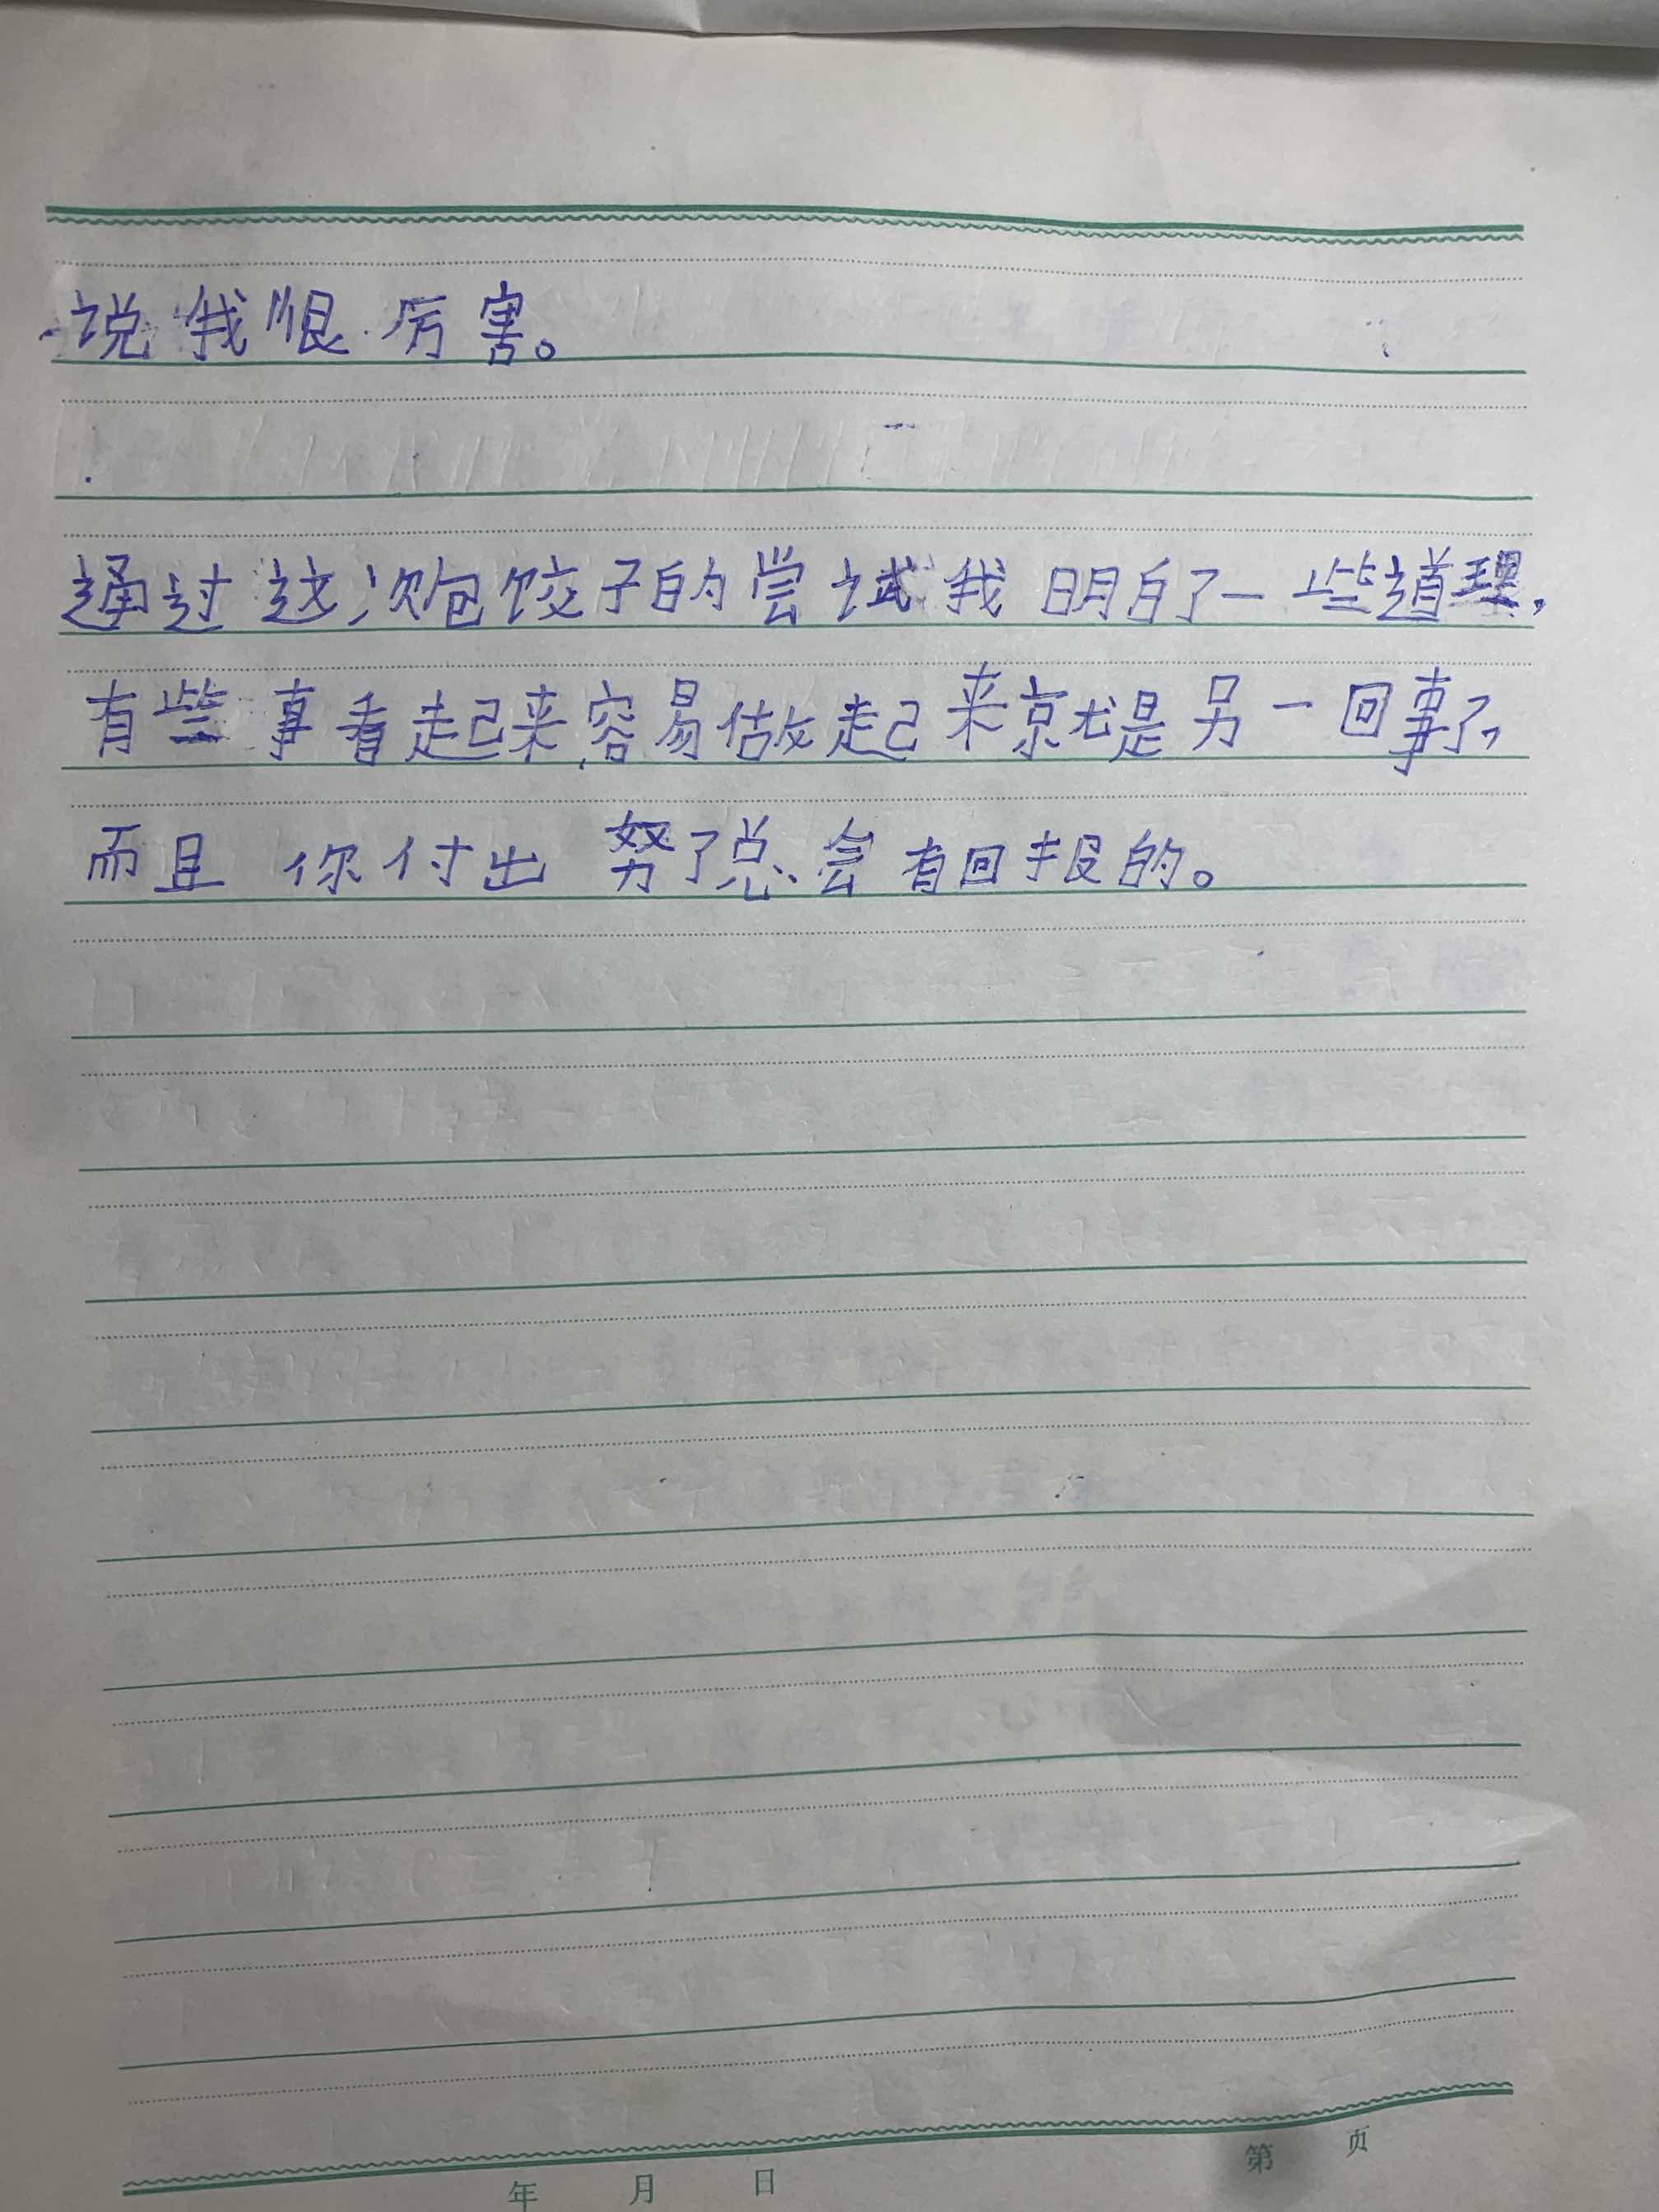 说我恨厉害。
通过这次炰饺子的尝试我明白了一些道理,
有些事看起来容易做起来就是另一回事了,
而且你付出努了总会有回报的。
年 月 日 第 页